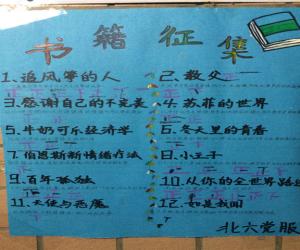 书籍征集
1.追风筝的人 2.教父
3.感谢自己的不完美 4.苏菲的世界
5.牛奶可乐经济学 6.冬天里的青春
7.伯恩斯新情绪疗法 8.小王子
9.百年孤独 10.从你的全世界路
11.天使与恶魔 12.如是我闻
北六党服